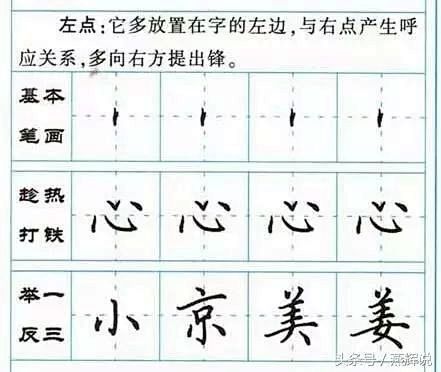 左点:它多放置在字的左边,与右点产生呼
应关系,多向右方提出锋。
基本
笔画
趁热
打铁
心 心 心 心
举一
反三
小 京 美 姜
头条号/燕辉说